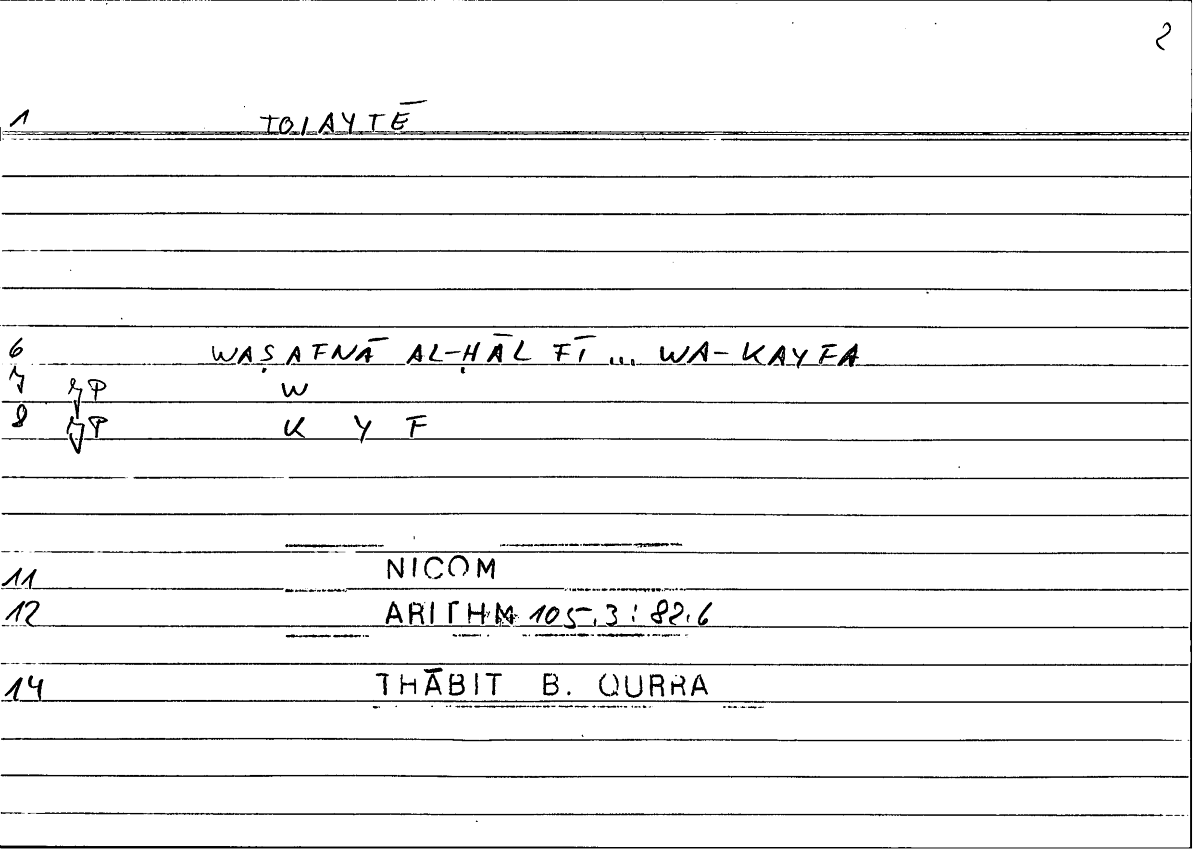 2
1 TOIAYTĒ
6 WAṢAFNĀ AL-ḤĀL FĪ ... WA-KAYFA
7 W
8 K Y F
11 NICOM
12 ARITHM 105.3 : 82.6
14 THĀBIT B. QURRA